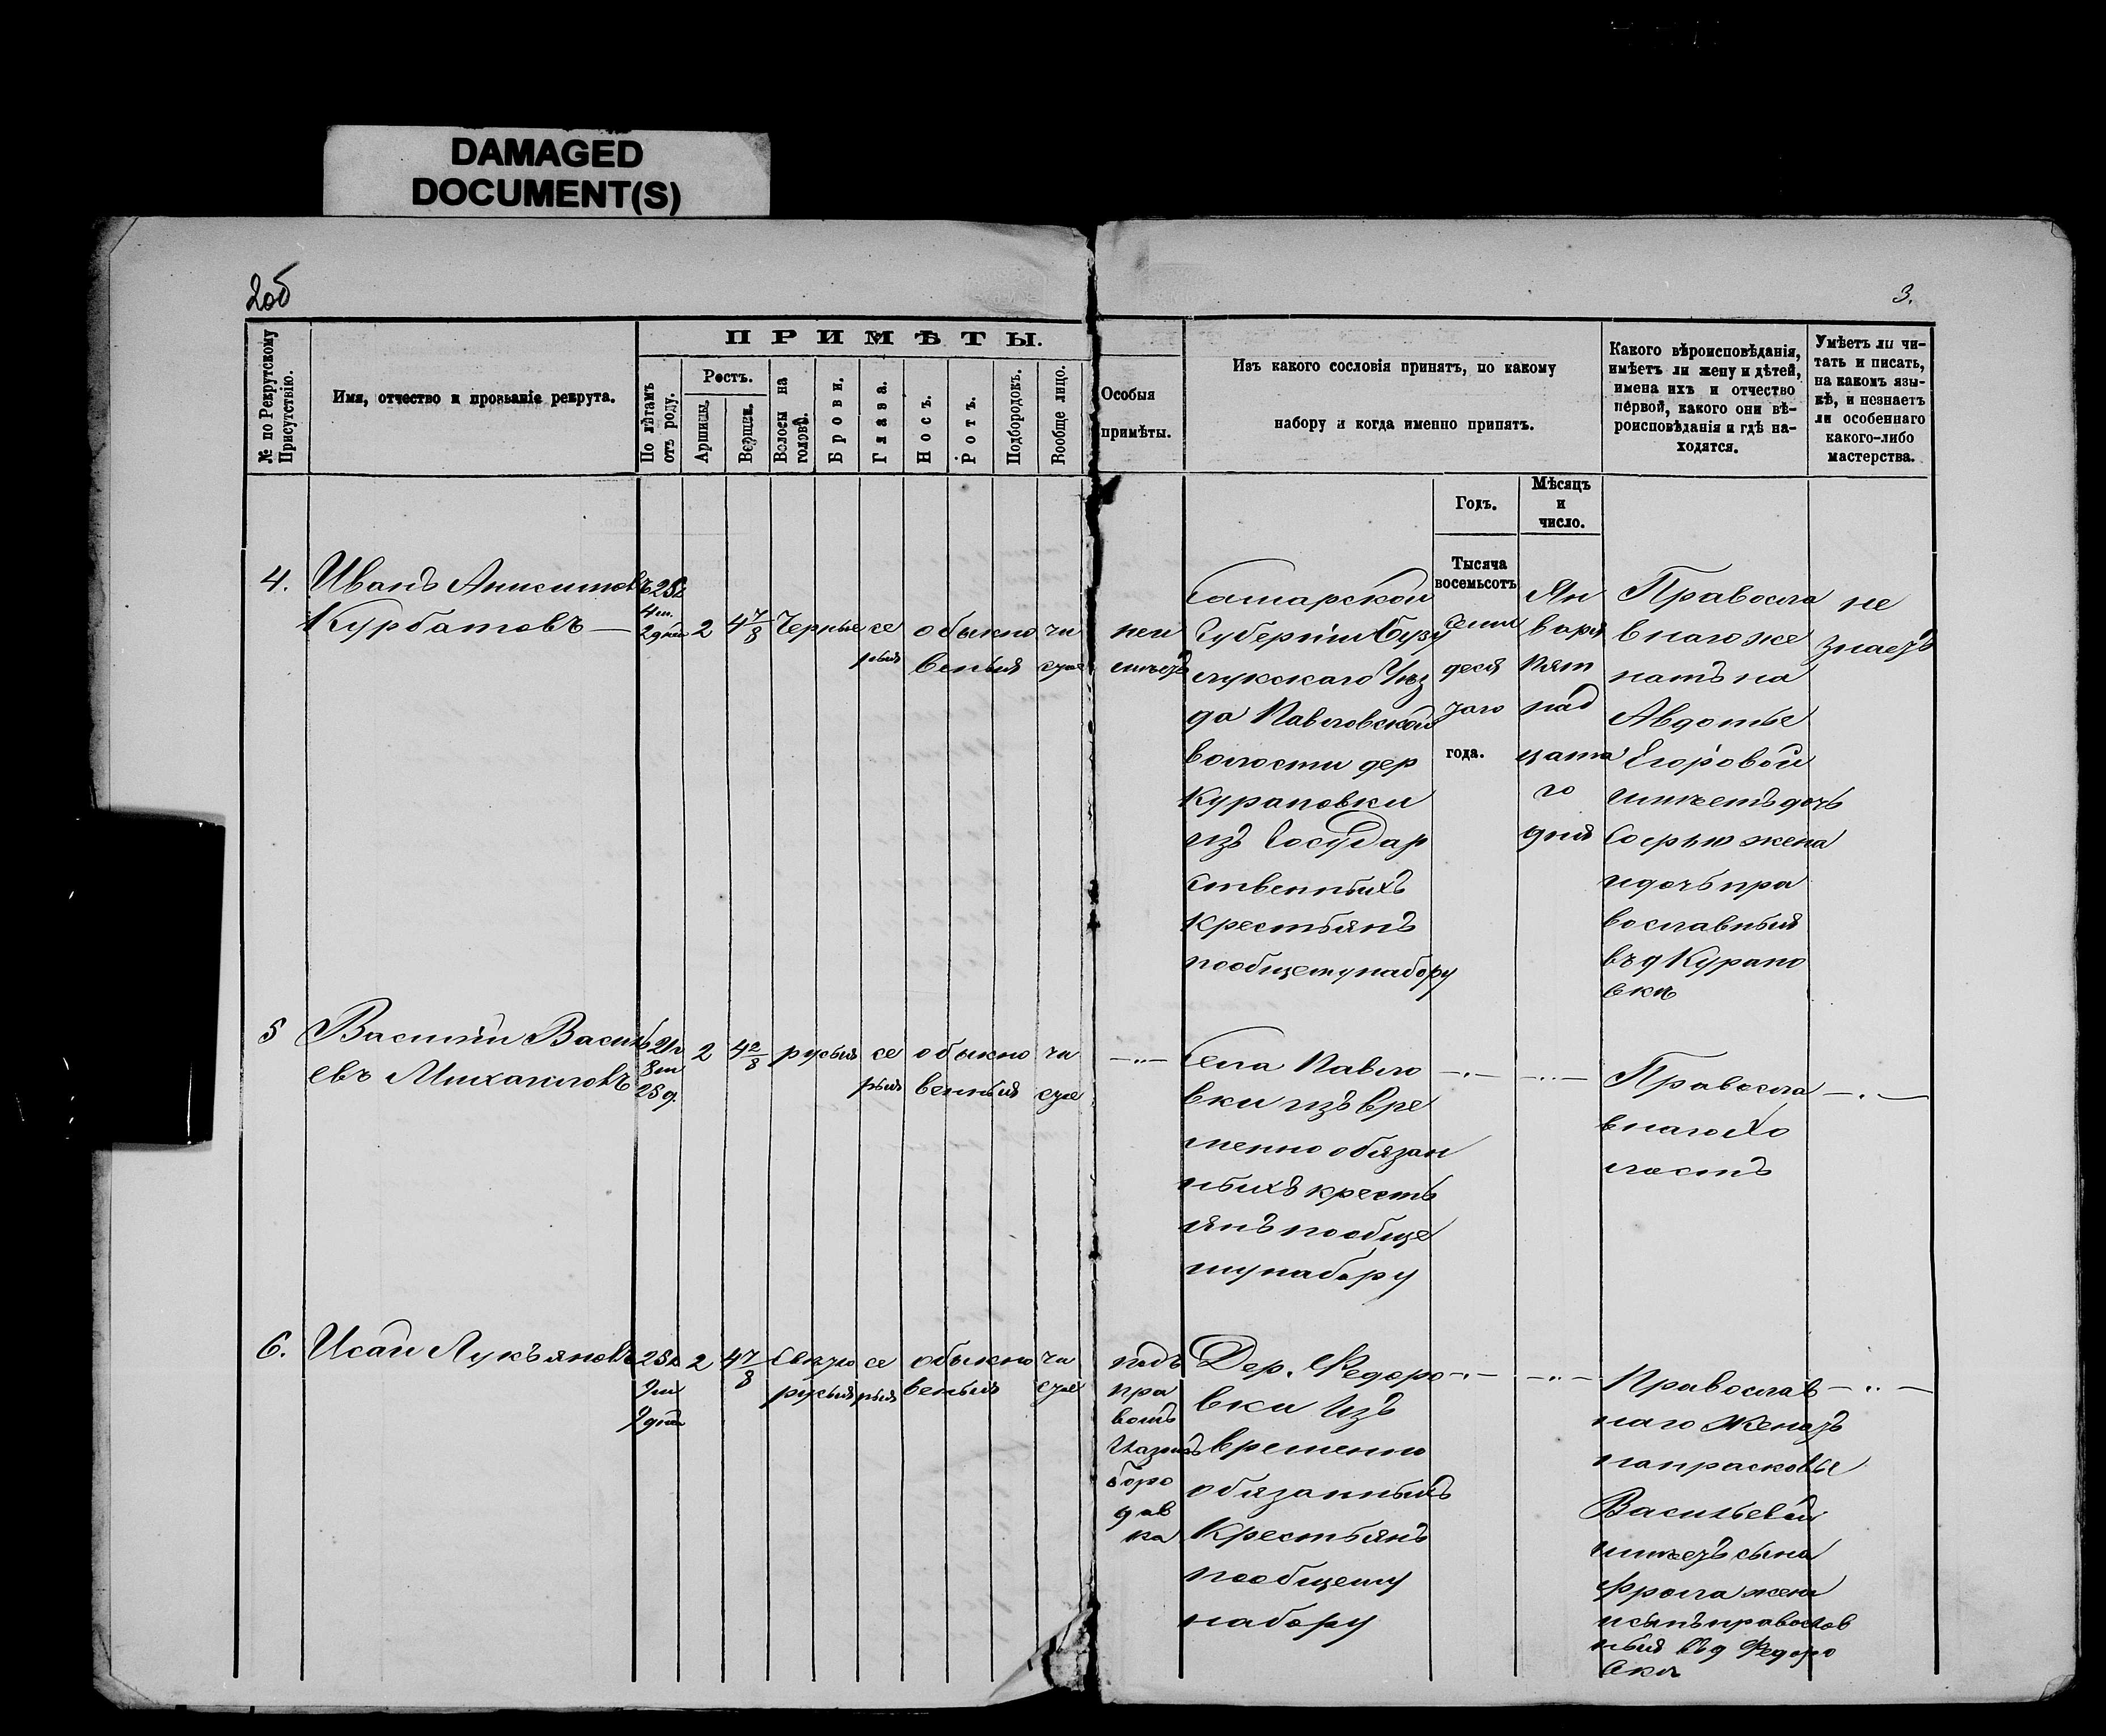 DAMAGED
DOCUMENT(S)
2об
3.
№ по Рекрутскому
Присутствію.
Имя, отчество и прозваніе рекрута.
ПРИМѢТЫ.
По лѣтамъ
отъ роду.
Ростъ.
Аршины.
Вершки.
Волосы на
головѣ.
Брови.
Глаза.
Носъ.
Ротъ.
Подбородокъ.
Вообще лицо.
Особыя
примѣты.
Изъ какого сословія принятъ, по какому
набору и когда именно принятъ.
Какого вѣроисповѣданія,
имѣетъ ли жену и дѣтей,
имена ихъ и отчество
первой, какого они вѣ-
роисповѣданія и гдѣ на-
ходятся.
Умѣетъ ли чи-
тать и писать,
на какомъ язы-
кѣ, и незнаетъ
ли особеннаго
какого-либо
мастерства.
Годъ.
Мѣсяцъ
и
число.
4.
Иванъ Анисимовъ
Курбатовъ —
2
4 7/8
Черные
се
рыя
обыкно
венныя
чи
стое
неи
меетъ
Самарской
Губерніи Бузу
лукскаго Уѣз
да Павловской
волости дер
Курановки
изъ Государ
ственныхъ
крестьянъ
пообщему набору
Тысяча
восемьсотъ
семи
деся
таго
года.
Ян
варя
пят
над
цата
го
дня
Правосла
внаго же
натъ на
Авдотье
Егоровой
имѣетъ дочь
Софью жена
и дочь пра
вославныя
въ д Курано
вкѣ
не
знаетъ
5
Василій Василь
евъ Михайловъ
21л
8м
25д.
2
4 2/8
русыя
се
рыя
обыкно
венныя
чи
стое
—"—
Села Павло
вки изъ вре
менно обязан
ныхъ кресть
янъ пообще
му набору
—"—
—"—
Правосла
внаго Хо
лостъ
—"—
6.
Исай Лукьяновъ
2
4 7/8
Свѣтло
русыя
се
рыя
обыкно
веныя
чи
стое
подъ
пра
вымъ
глазомъ
боро
дав
ка
Дер. Федоро
вки Изъ
временно
обязанныхъ
Крестьянъ
пообщему
набору
—"—
—"—
Православ
наго Женатъ
на прасковье
Васильевой
имѣетъ сына
Фрола жена
и сынъ православ
ныя въ д Федоро
вкѣ
—"—